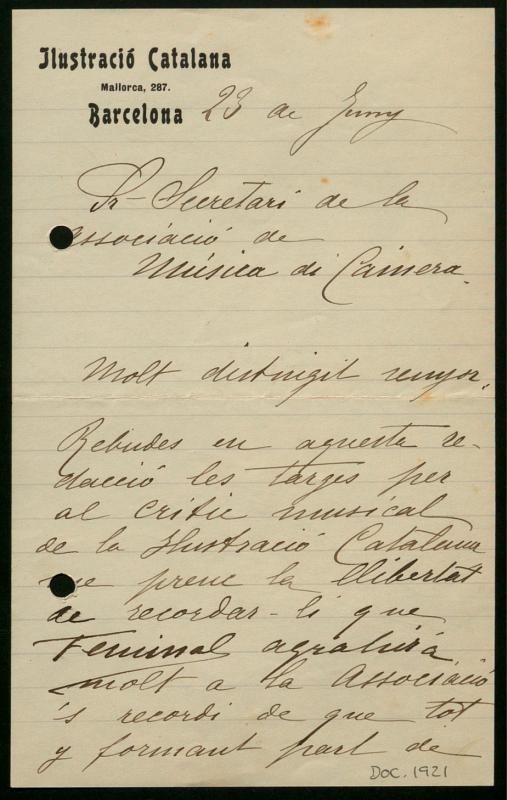 Ilustració Catalana
Mallorca, 287.
Barcelona 23 de Juny
Sr. Secretari de la
Associació de
Música di Camera.
Molt distingit senyor,
Rebudes en aquesta re-
dacció les targes per
al critic musical
de la Ilustració Catalana
me prenc la llibertat
de recordar-li que
Feminal agrahirá
molt a la Associació
's recordi de que tot
y formant part de
DOC. 1921